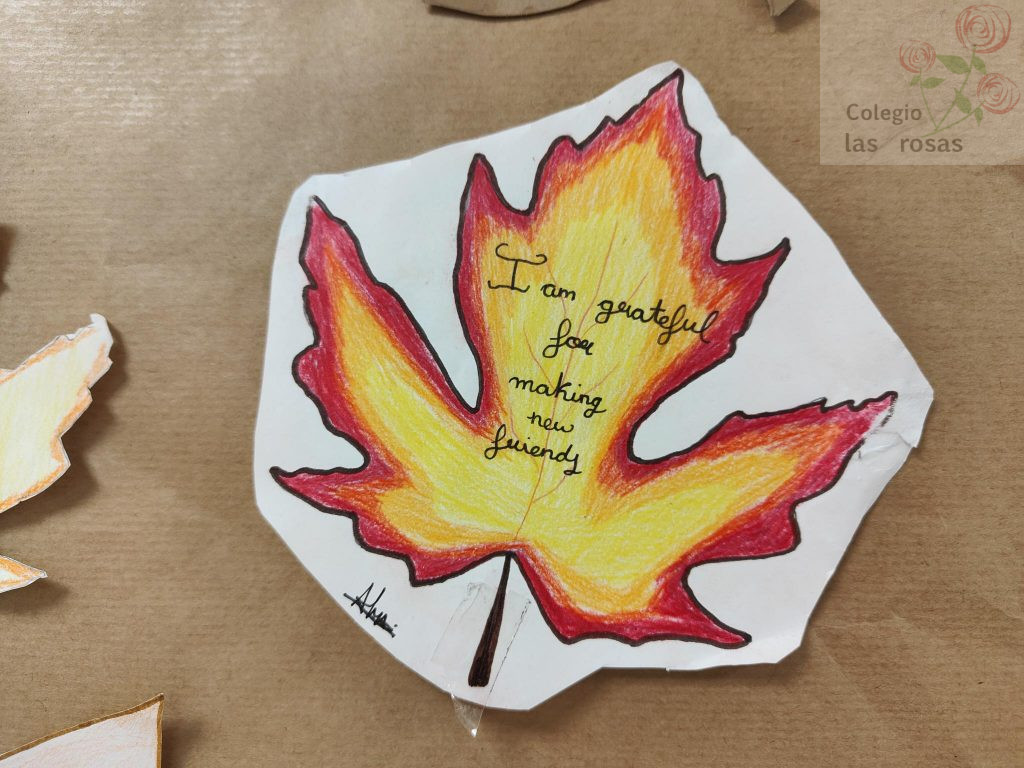 Colegio
las rosas
I am grateful
for
making
new
friends